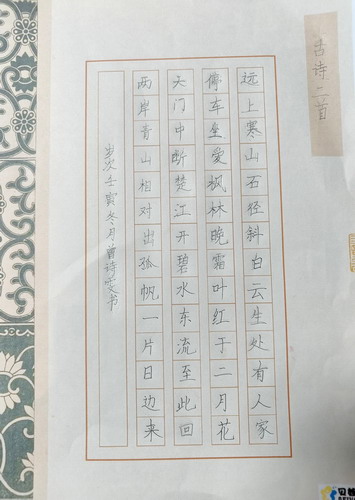 古诗二首
远上寒山石径斜白云生处有人家
停车坐爱枫林晚霜叶红于二月花
天门中断楚江开碧水东流至此回
两岸青山相对出孤帆一片日边来
岁次壬寅冬月曾诗雯书